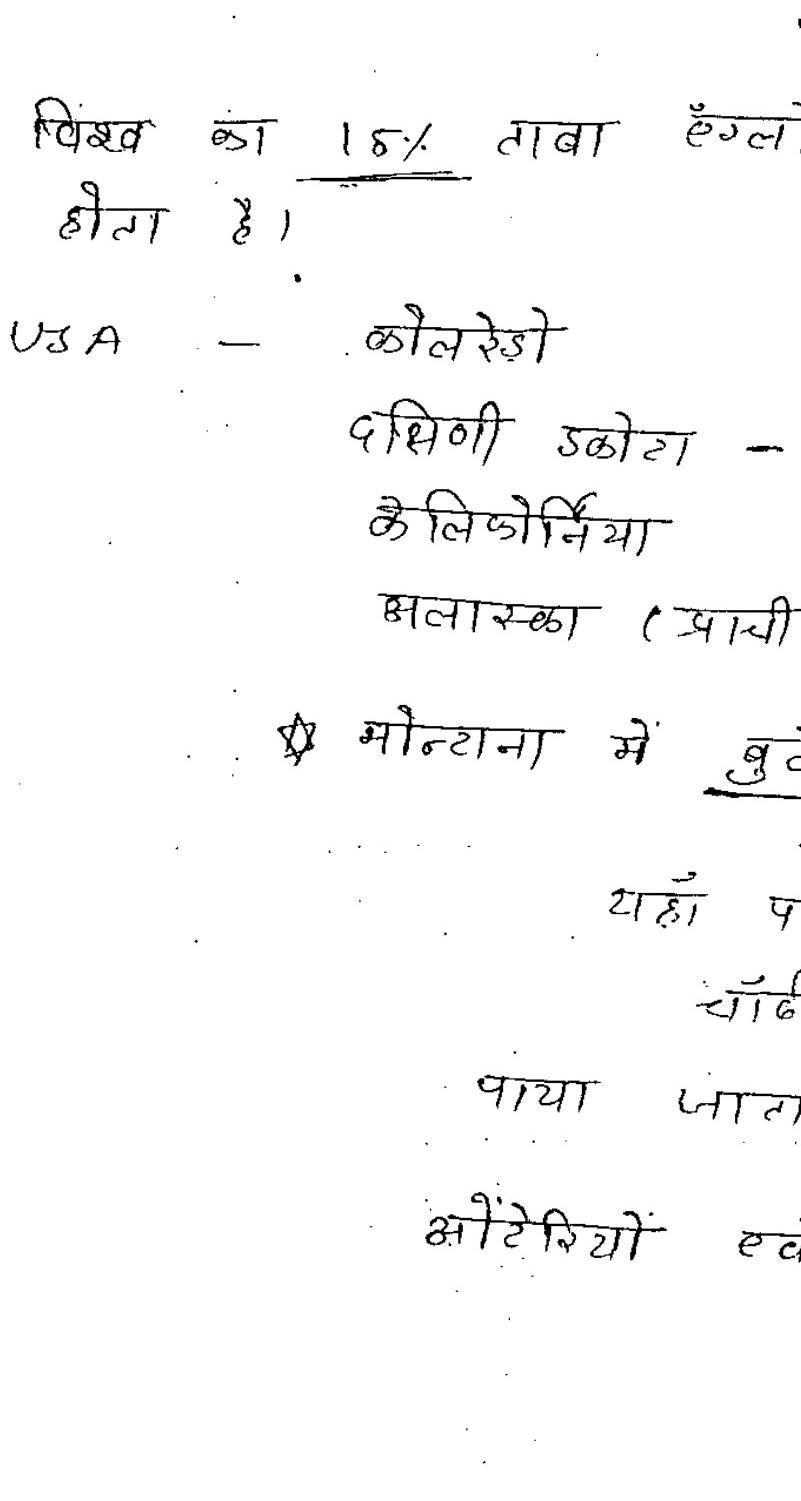 विश्व का 15% ताबा ऍग्लो
होता है।
USA - कोलरेडो
दक्षिणी डकोटा -
केलिफोर्निया
अलास्का (प्राची
☆ मोन्टाना में बुटे
यहाँ प
चाँदी
पाया जाता
ओंटेरियों एवं